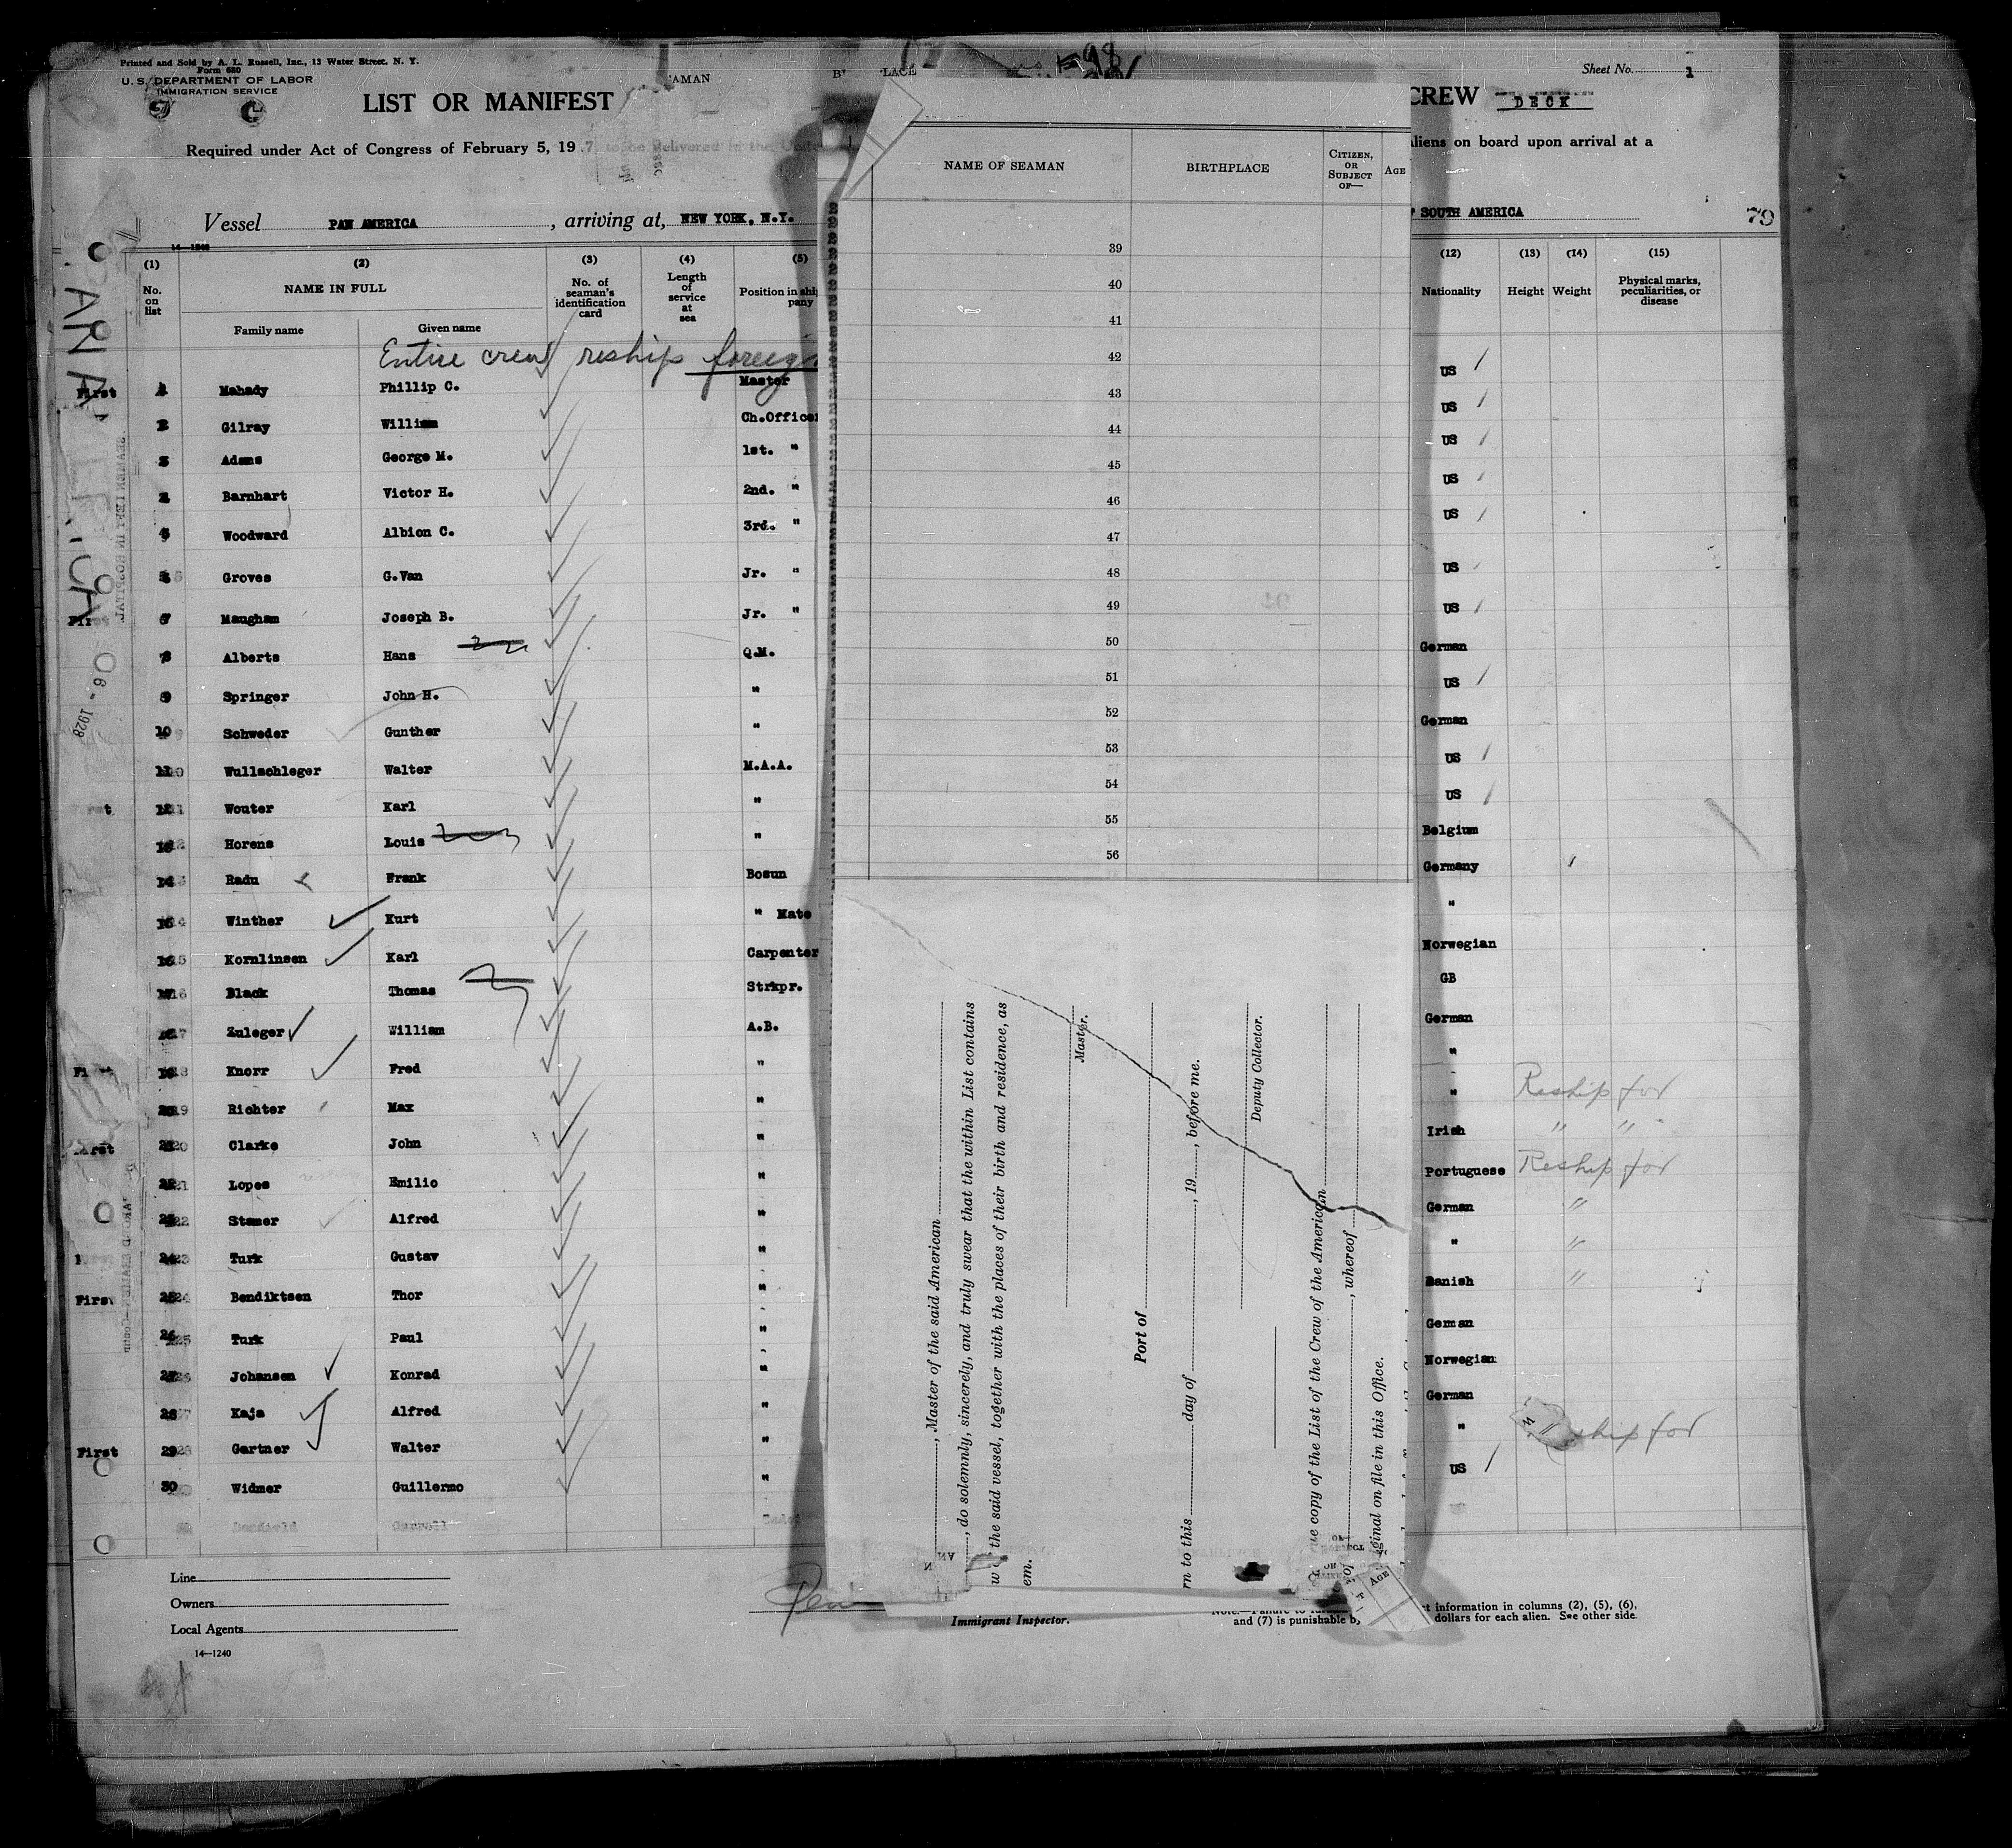 Printed and Sold by A. L. Russell, Inc., 13 Water Street, N. Y.
Form 680
U. S. DEPARTMENT OF LABOR
IMMIGRATION SERVICE
LIST OR MANIFEST
AMAN
LACE
98
Sheet No. 1
CREW DECK
Required under Act of Congress of February 5, 19 7, to be delivered in the
aliens on board upon arrival at a
Vessel PAN AMERICA, arriving at, NEW YORK, N.Y.
SOUTH AMERICA
79
14—1240
(1) (2) (3) (4) (5)
No. on list
NAME IN FULL
Family name Given name
No. of seaman's identification card
Length of service at sea
Position in
pany
(12) (13) (14) (15)
Nationality Height Weight Physical marks, peculiarities, or disease
Entire crew reship foreign
First 1 Mahady Phillip C. Master US
2 Gilray William Ch.Officer US
3 Adams George M. 1st. " US
Barnhart Victor H. 2nd. " US
Woodward Albion C. 3rd. " US
Groves G.Van Jr. " US
7 Maugham Joseph B. Jr. " US
8 Alberts Hans Q.M. German
9 Springer John H. " US
10 Schweder Gunther " German
11 Wullschleger Walter M.A.A. US
12 Wouter Karl " US
Horens Louis " Belgium
Radu Frank Bosun Germany
Winther Kurt " Mate "
Kornlinsen Karl Carpenter Norwegian
Black Thomas Strkpr. GB
Zuleger William A.B. German
Knorr Fred " "
Richter Max " " Reship for
Clarke John " Irish " "
Lopes Emilio " Portuguese Reship for
Stamer Alfred " German "
Turk Gustav " " "
First 25 Bendiktsen Thor " Danish "
26 Turk Paul " German
27 Johansen Konrad " Norwegian
28 Kaja Alfred " German
First 29 Gartner Walter " " ship for
30 Widmer Guillermo " US
Line
Owners
Local Agents
14—1240
Immigrant Inspector.
and (7) is punishable b
t information in columns (2), (5), (6),
dollars for each alien. See other side.
NAME OF SEAMAN BIRTHPLACE CITIZEN, OR SUBJECT OF— AGE
39
40
41
42
43
44
45
46
47
48
49
50
51
52
53
54
55
56
, Master of the said American
, do solemnly, sincerely, and truly swear that the within List contains
the said vessel, together with the places of their birth and residence, as
em.
Master.
Port of
rn to this day of , 19 , before me.
Deputy Collector.
e copy of the List of the Crew of the American
, whereof
ginal on file in this Office.
AGE
06. 1928
SEAMEN LEFT IN HOSPITAL